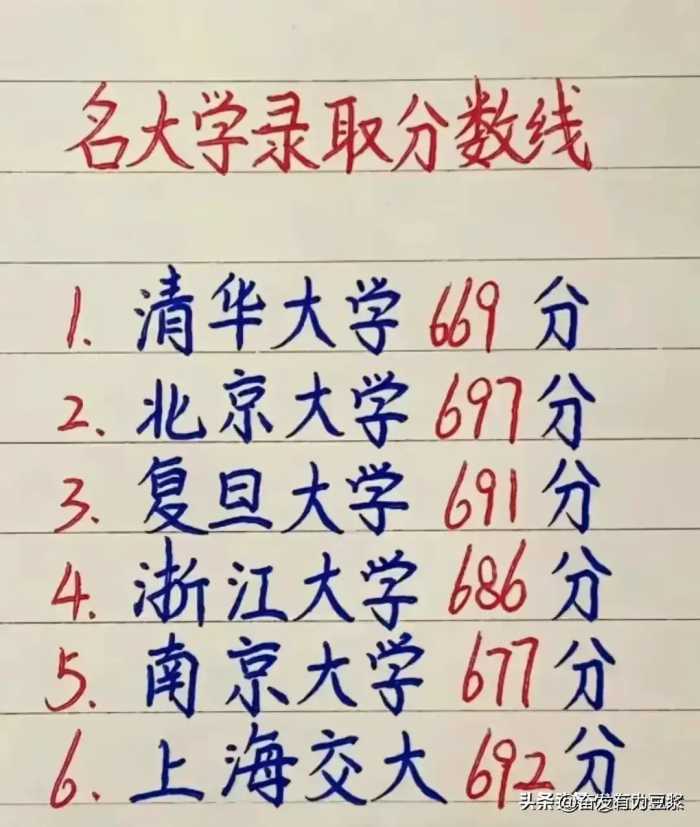 名大学录取分数线
1. 清华大学 669 分
2. 北京大学 697 分
3. 复旦大学 691 分
4. 浙江大学 686 分
5. 南京大学 677 分
6. 上海交大 692 分
头条 @奋发有为豆浆